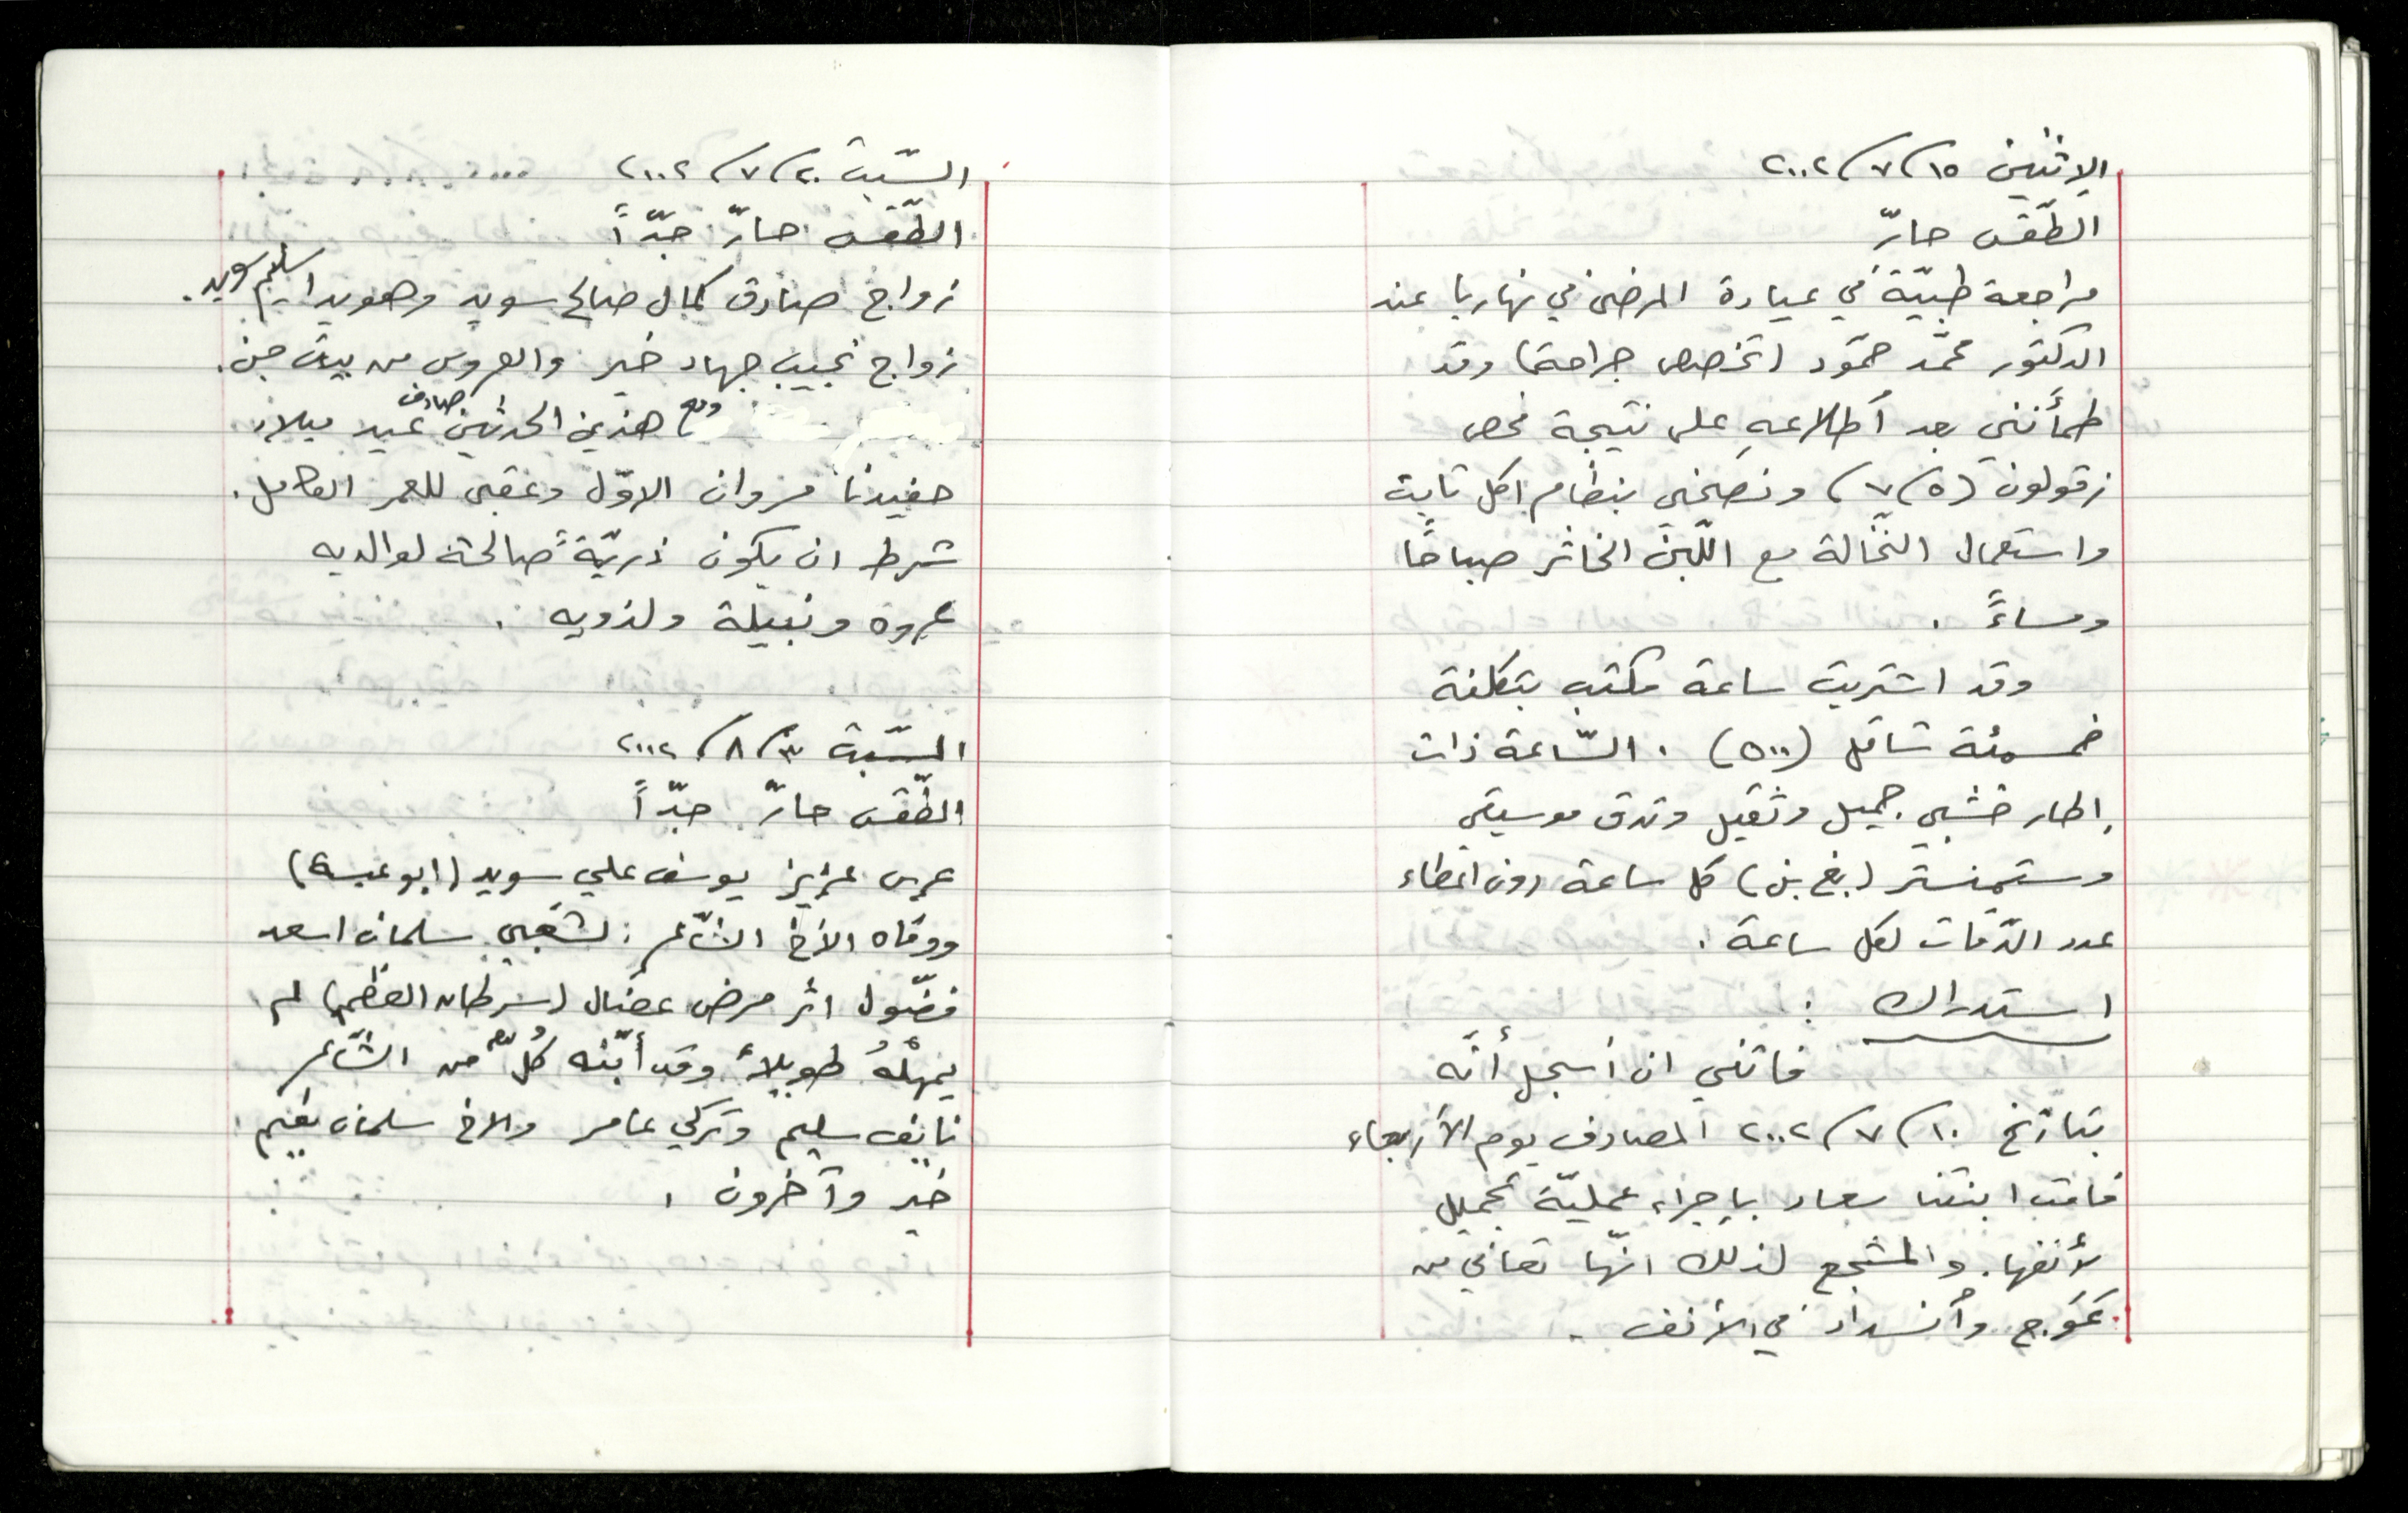 الإثنين ١٥/٧/٢٠٠٢
الطّقس حارّ
مراجعة طبيّة في عيادة المرضى في نهاريا عند
الدكتور محمّد حمّود (تخصص جراحة) وقد
طمأنني بعد أطلاعه على نتيجة فحص
زقولون (٧/٥) ونصحني بنظام اكل ثابت
واستعمال النّخالة مع اللّبن الخاثر صباحًا
ومساءً .
وقد اشتريت ساعة مكتب بتكلفة
خمسمئة شاقل (٥٠٠) . السّاعة ذات
إطار خشبي جميل وثقيل وتدق موسيقى
وستمنستر (بغ بن) كل ساعة دون اعطاء
عدد الدّقات لكل ساعة .
استدراك :
فاتني ان أسجل أنّه
بتاريخ ١٠/٧/٢٠٠٢ المصادف يوم الأربعاء
قامت ابنتنا سعاد بإجراء عمليّة تجميل
لأنفها. والمشجع لذلك انّها تعاني من
عَوَج وأنسداد في الأنف .
السّبت ٢٠/٧/٢٠٠٢
الطّقس حارّ جدّاً
زواج صادق كمال صالح سويد وهويدا سليم سويد.
زواج نجيب جهاد خير والعروس من بيت جن.
ومع هذين الحدثين صادف عيد ميلاد
حفيدنا مروان الاوّل وعقبى للعمر الكامل.
شرط ان يكون ذريّةً صالحة لوالديه
عروة ونبيلة ولذويه .
السّبت ٣/٨/٢٠٠٢
الطّقس حارّ جدّاً
عرس عزيز يوسف علي سويد (ابو عبسة)
ووفاه الأخ الشّاعر الشعبي سلمان اسعد
فضّول اثر مرض عضال (سرطان العظم) لم
يمهلْهُ طويلاً وقد أبّنه كُلٌّ من الشّاعر
نايف سليم وتركي عامر والاخ سلمان نعيم
خير وآخرون .